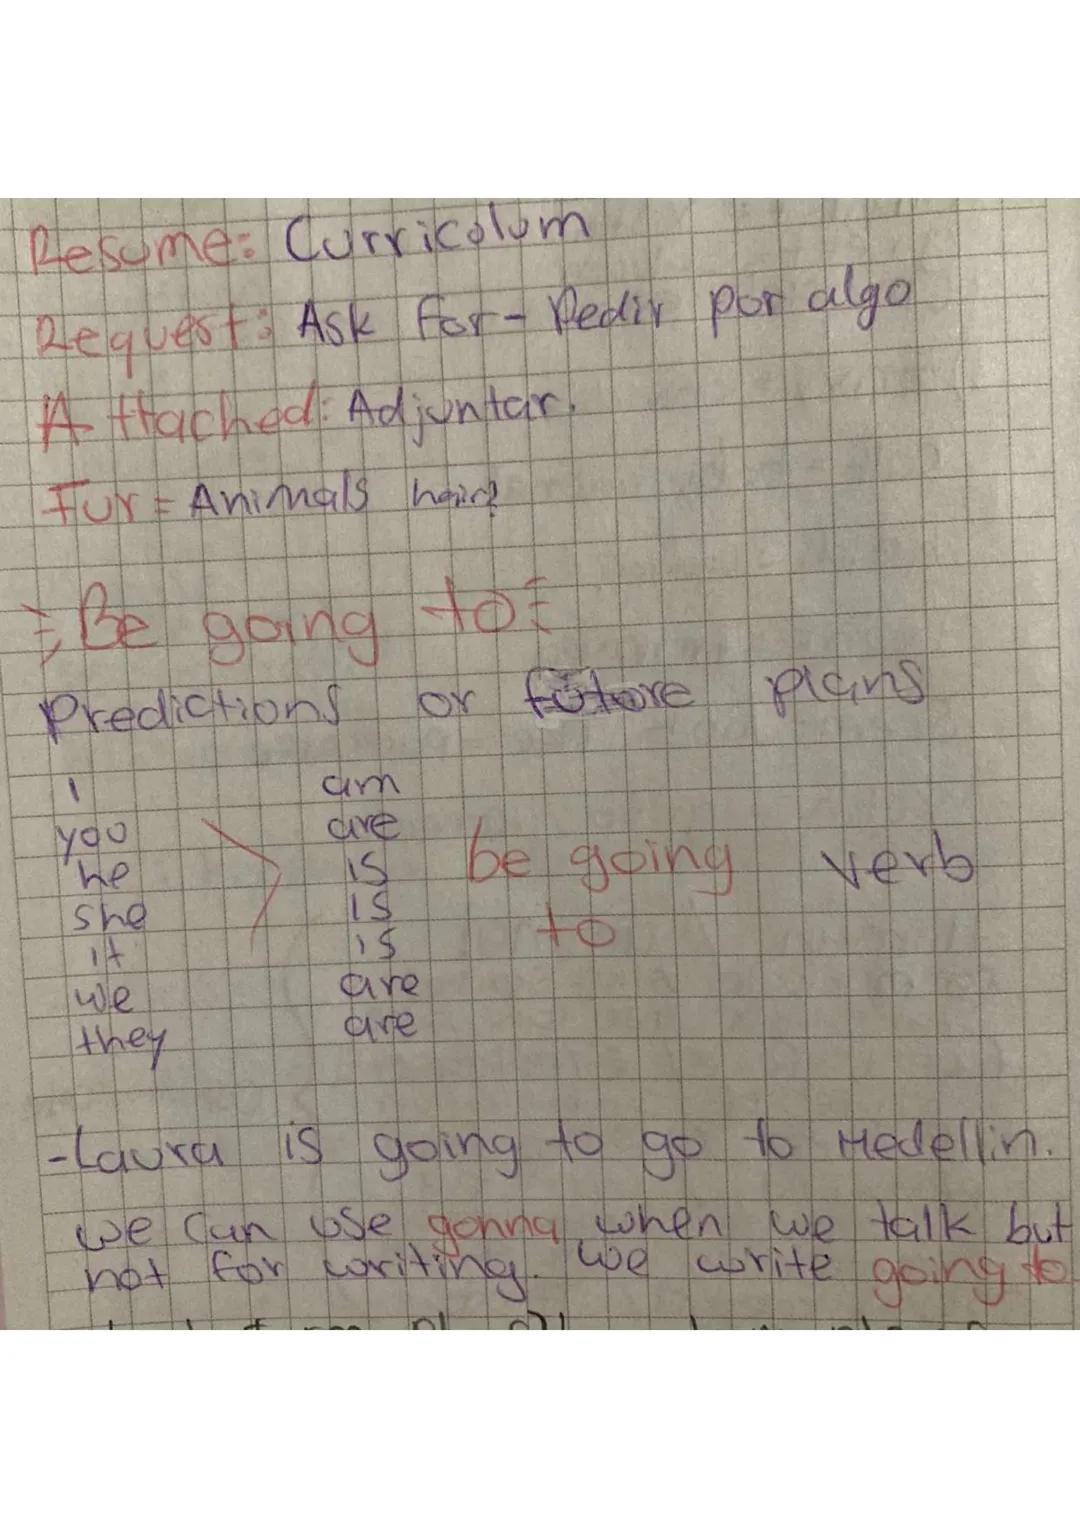 Resume: Curricolum
Request: Ask for - Pedir por algo
Attached: Adjuntar.
Fur = Animals hair
Be going to
Predictions or future plans
I am
you are
he is be going verb
she is to
it is
we are
they are
-Laura is going to go to Medellin.
we can use gonna when we talk but
not for writing. we write going to